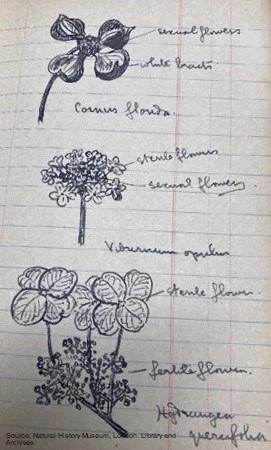 sexual flowers
white bracts
Cornus florida.
sterile flowers
sexual flowers.
Viburnum opulus
sterile flower.
fertile flower.
Hydrangea
quercifolia
Source: Natural History Museum, London. Library and
Archives